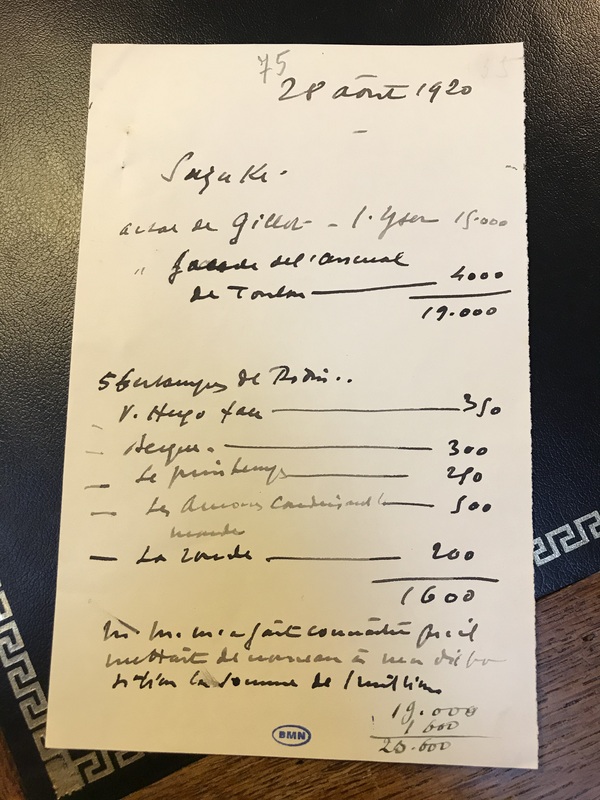 75
28 août 1920
Suzuki.
achat de Gillot - l'Yser 15.000
" façade de l'arsenal
de Toulon 4000
19.000
5 Estampes de Rodin..
V. Hugo face 350
Becque. 300
Le printemps 250
Les Amours conduisant le 500
monde
La ronde 200
1600
M. m'a fait connaître qu'il
mettrait de nouveau à ma dispo
sition la somme de 1 million
19.000
1 600
20.600
BMN